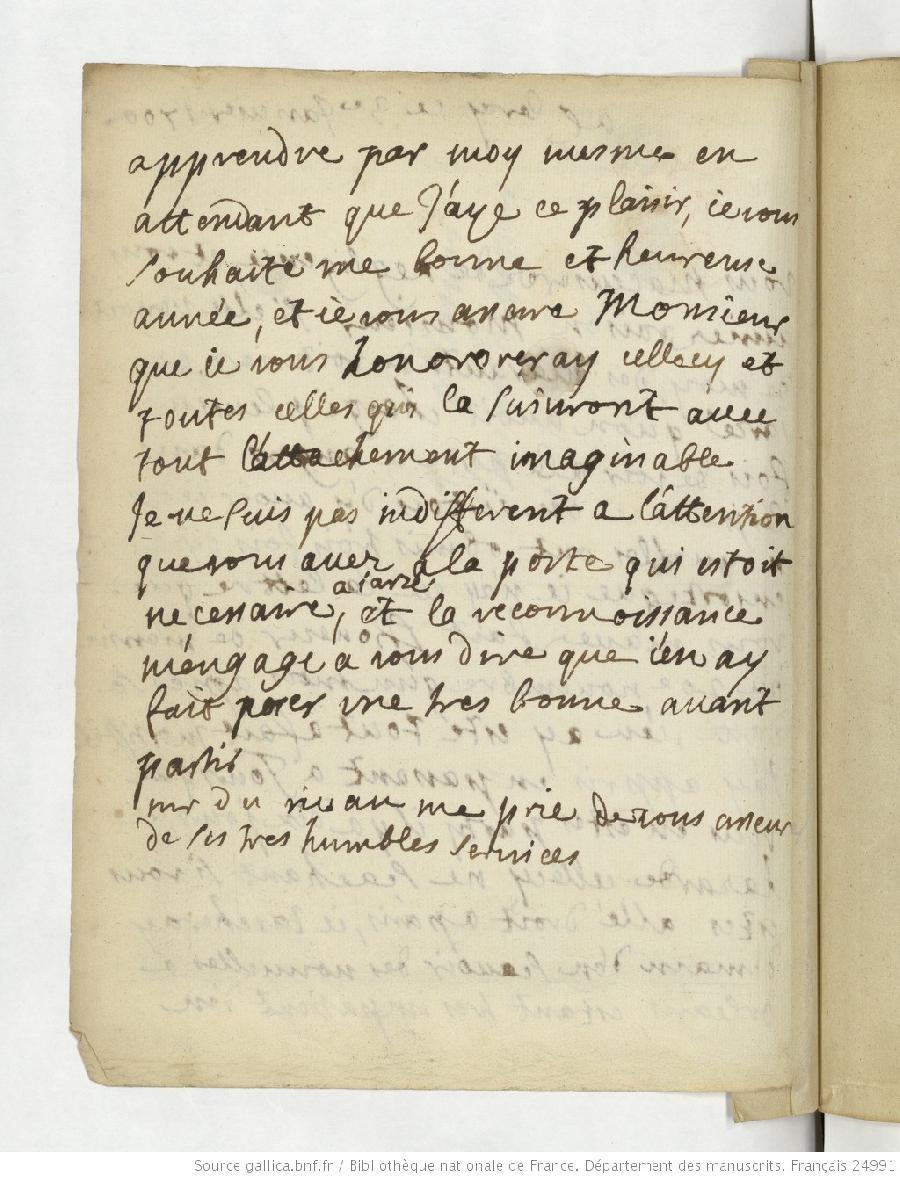 apprendre par moy mesme en
attendant que j'aye ce plaisir, ie vous
souhaite vne bonne et heureuse
année, et ie vous assure Monsieur
que ie vous honororeray cellecy et
toutes celles qui la suivront avec
tout l'attachement imaginable
Je ne suis pas indifferent a l'attention
que vous avez a la porte qui estoit
a l'arze
necessaire, et la reconnoissance
m'engage a vous dire que i'en ay
fait poser vne tres bonne avant
partir
mr du ruau me prie de vous asseur
de ses tres humbles services
Source gallica.bnf.fr / Bibliothèque nationale de France. Département des manuscrits. Français 24991